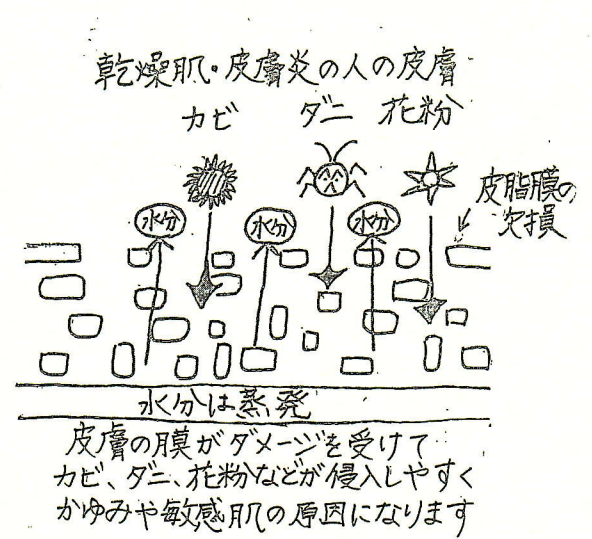 乾燥肌・皮膚炎の人の皮膚
カビ ダニ 花粉
皮脂膜の
欠損
水分 水分 水分
水分は蒸発
皮膚の膜がダメージを受けて
カビ、ダニ、花粉などが侵入しやすく
かゆみや敏感肌の原因になります